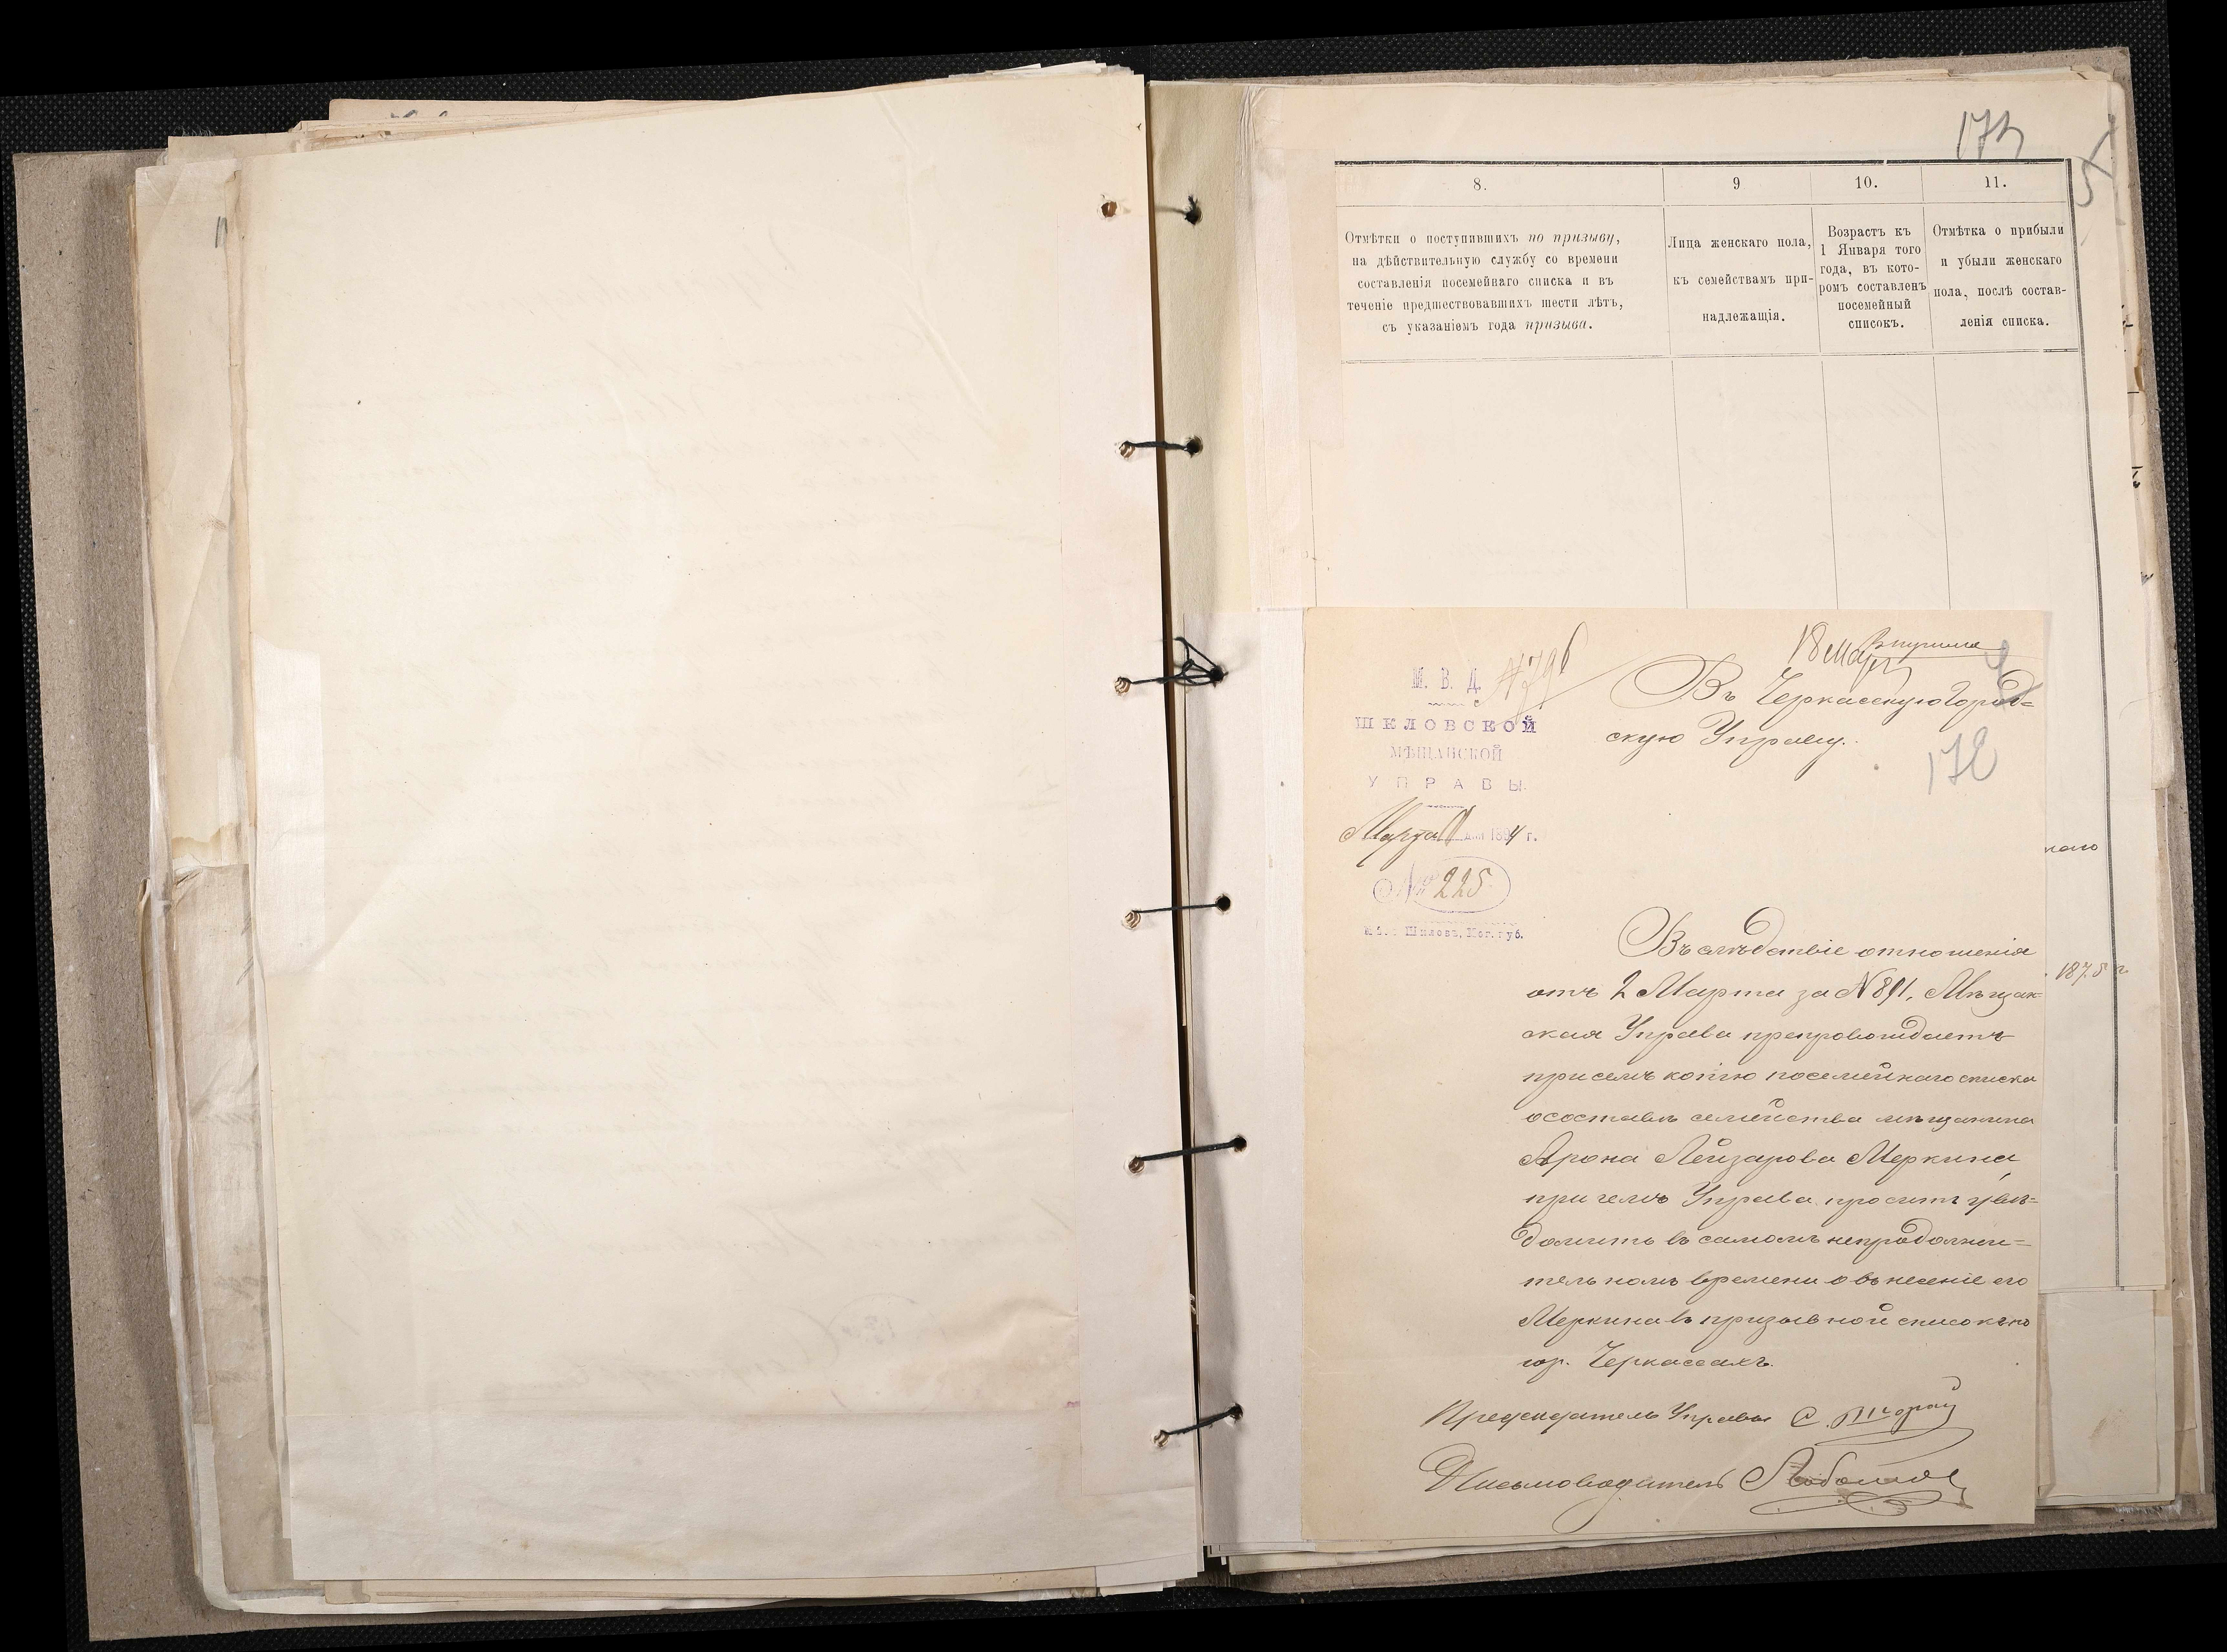 173
8.
9
10.
11.
Отмѣтки о поступившихъ по призыву,
на дѣйствительную службу со времени
составленія посемейнаго списка и въ
теченіе предшествовавшихъ шести лѣтъ,
съ указаніемъ года призыва.
Лица женскаго пола,
къ семействамъ при-
надлежащія.
Возрастъ къ
1 Января того
года, въ кото-
ромъ составленъ
посемейный
списокъ.
Отмѣтка о прибыли
и убыли женскаго
пола, послѣ состав-
ленія списка.
18 Мар
М. В. Д.
ШКЛОВСКОЙ
МѢЩАНСКОЙ
УПРАВЫ.
Марта дня 1894 г.
№ 225
М. Шкловъ, Мог. губ.
Въ Черкасскую Город=
скую Управу.
172
Въ слѣдствіе отношенія
отъ 2 Марта за № 891, Мѣщан-
ская Управа препровождаетъ
при семъ копію посемейнаго списка
о составѣ семейства мѣщанина
Арона Лейзарова Меркина,
при чемъ Управа проситъ увѣ=
домить въ самомъ непродолжи=
тельномъ времени о внесеніе его
Меркина въ призывной списокъ по
гор. Черкассахъ.
Предсѣдатель Управы С.
Письмоводитель
наго
1875 г